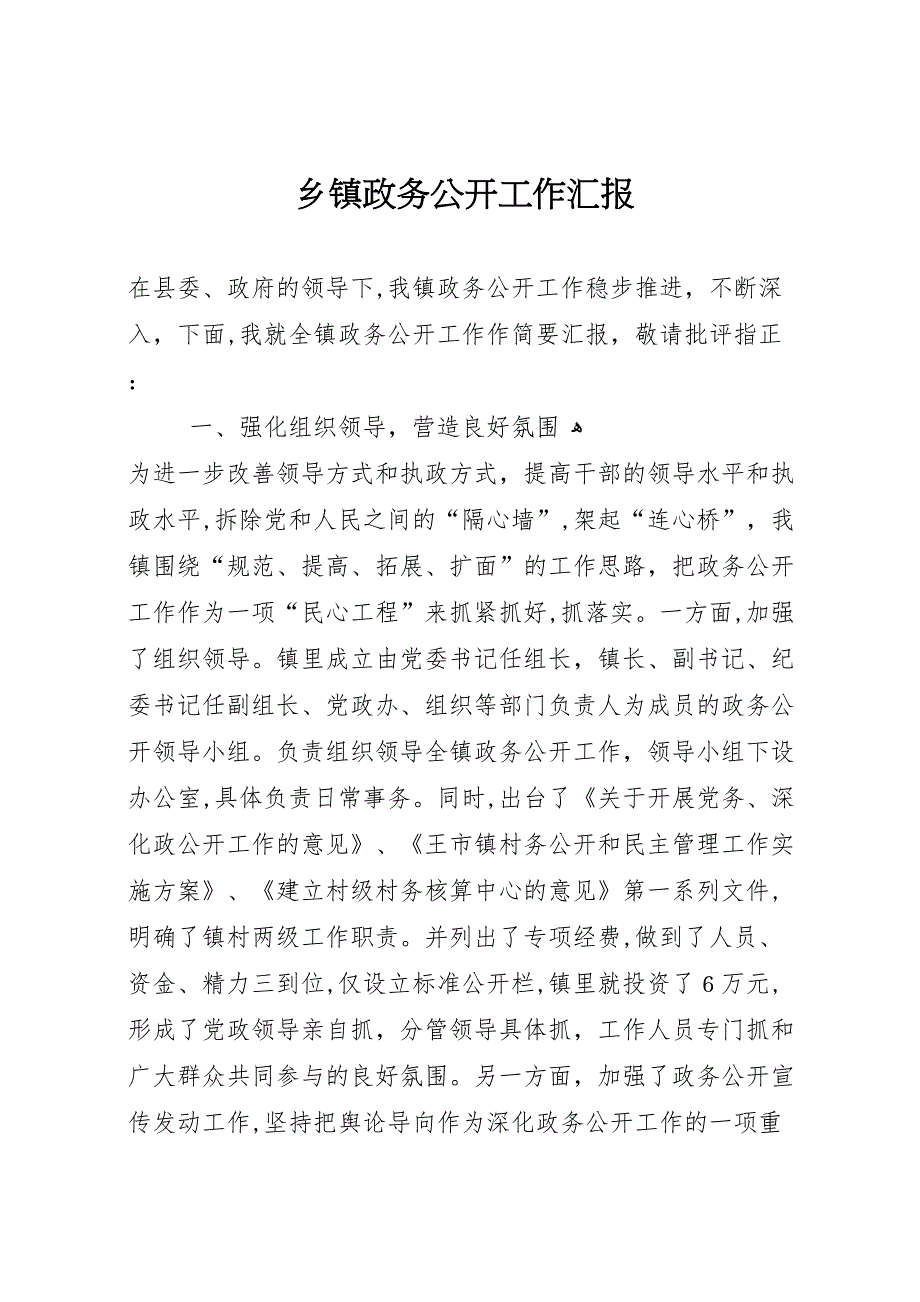 乡镇政务公开工作汇报
在县委、政府的领导下,我镇政务公开工作稳步推进，不断深
入，下面,我就全镇政务公开工作作简要汇报，敬请批评指正
：
一、强化组织领导，营造良好氛围 ﻫ
为进一步改善领导方式和执政方式，提高干部的领导水平和执
政水平,拆除党和人民之间的“隔心墙”,架起“连心桥”，我
镇围绕“规范、提高、拓展、扩面”的工作思路，把政务公开
工作作为一项“民心工程”来抓紧抓好,抓落实。一方面,加强
了组织领导。镇里成立由党委书记任组长，镇长、副书记、纪
委书记任副组长、党政办、组织等部门负责人为成员的政务公
开领导小组。负责组织领导全镇政务公开工作，领导小组下设
办公室,具体负责日常事务。同时,出台了《关于开展党务、深
化政公开工作的意见》、《王市镇村务公开和民主管理工作实
施方案》、《建立村级村务核算中心的意见》第一系列文件，
明确了镇村两级工作职责。并列出了专项经费,做到了人员、
资金、精力三到位,仅设立标准公开栏,镇里就投资了6万元，
形成了党政领导亲自抓，分管领导具体抓，工作人员专门抓和
广大群众共同参与的良好氛围。另一方面，加强了政务公开宣
传发动工作,坚持把舆论导向作为深化政务公开工作的一项重